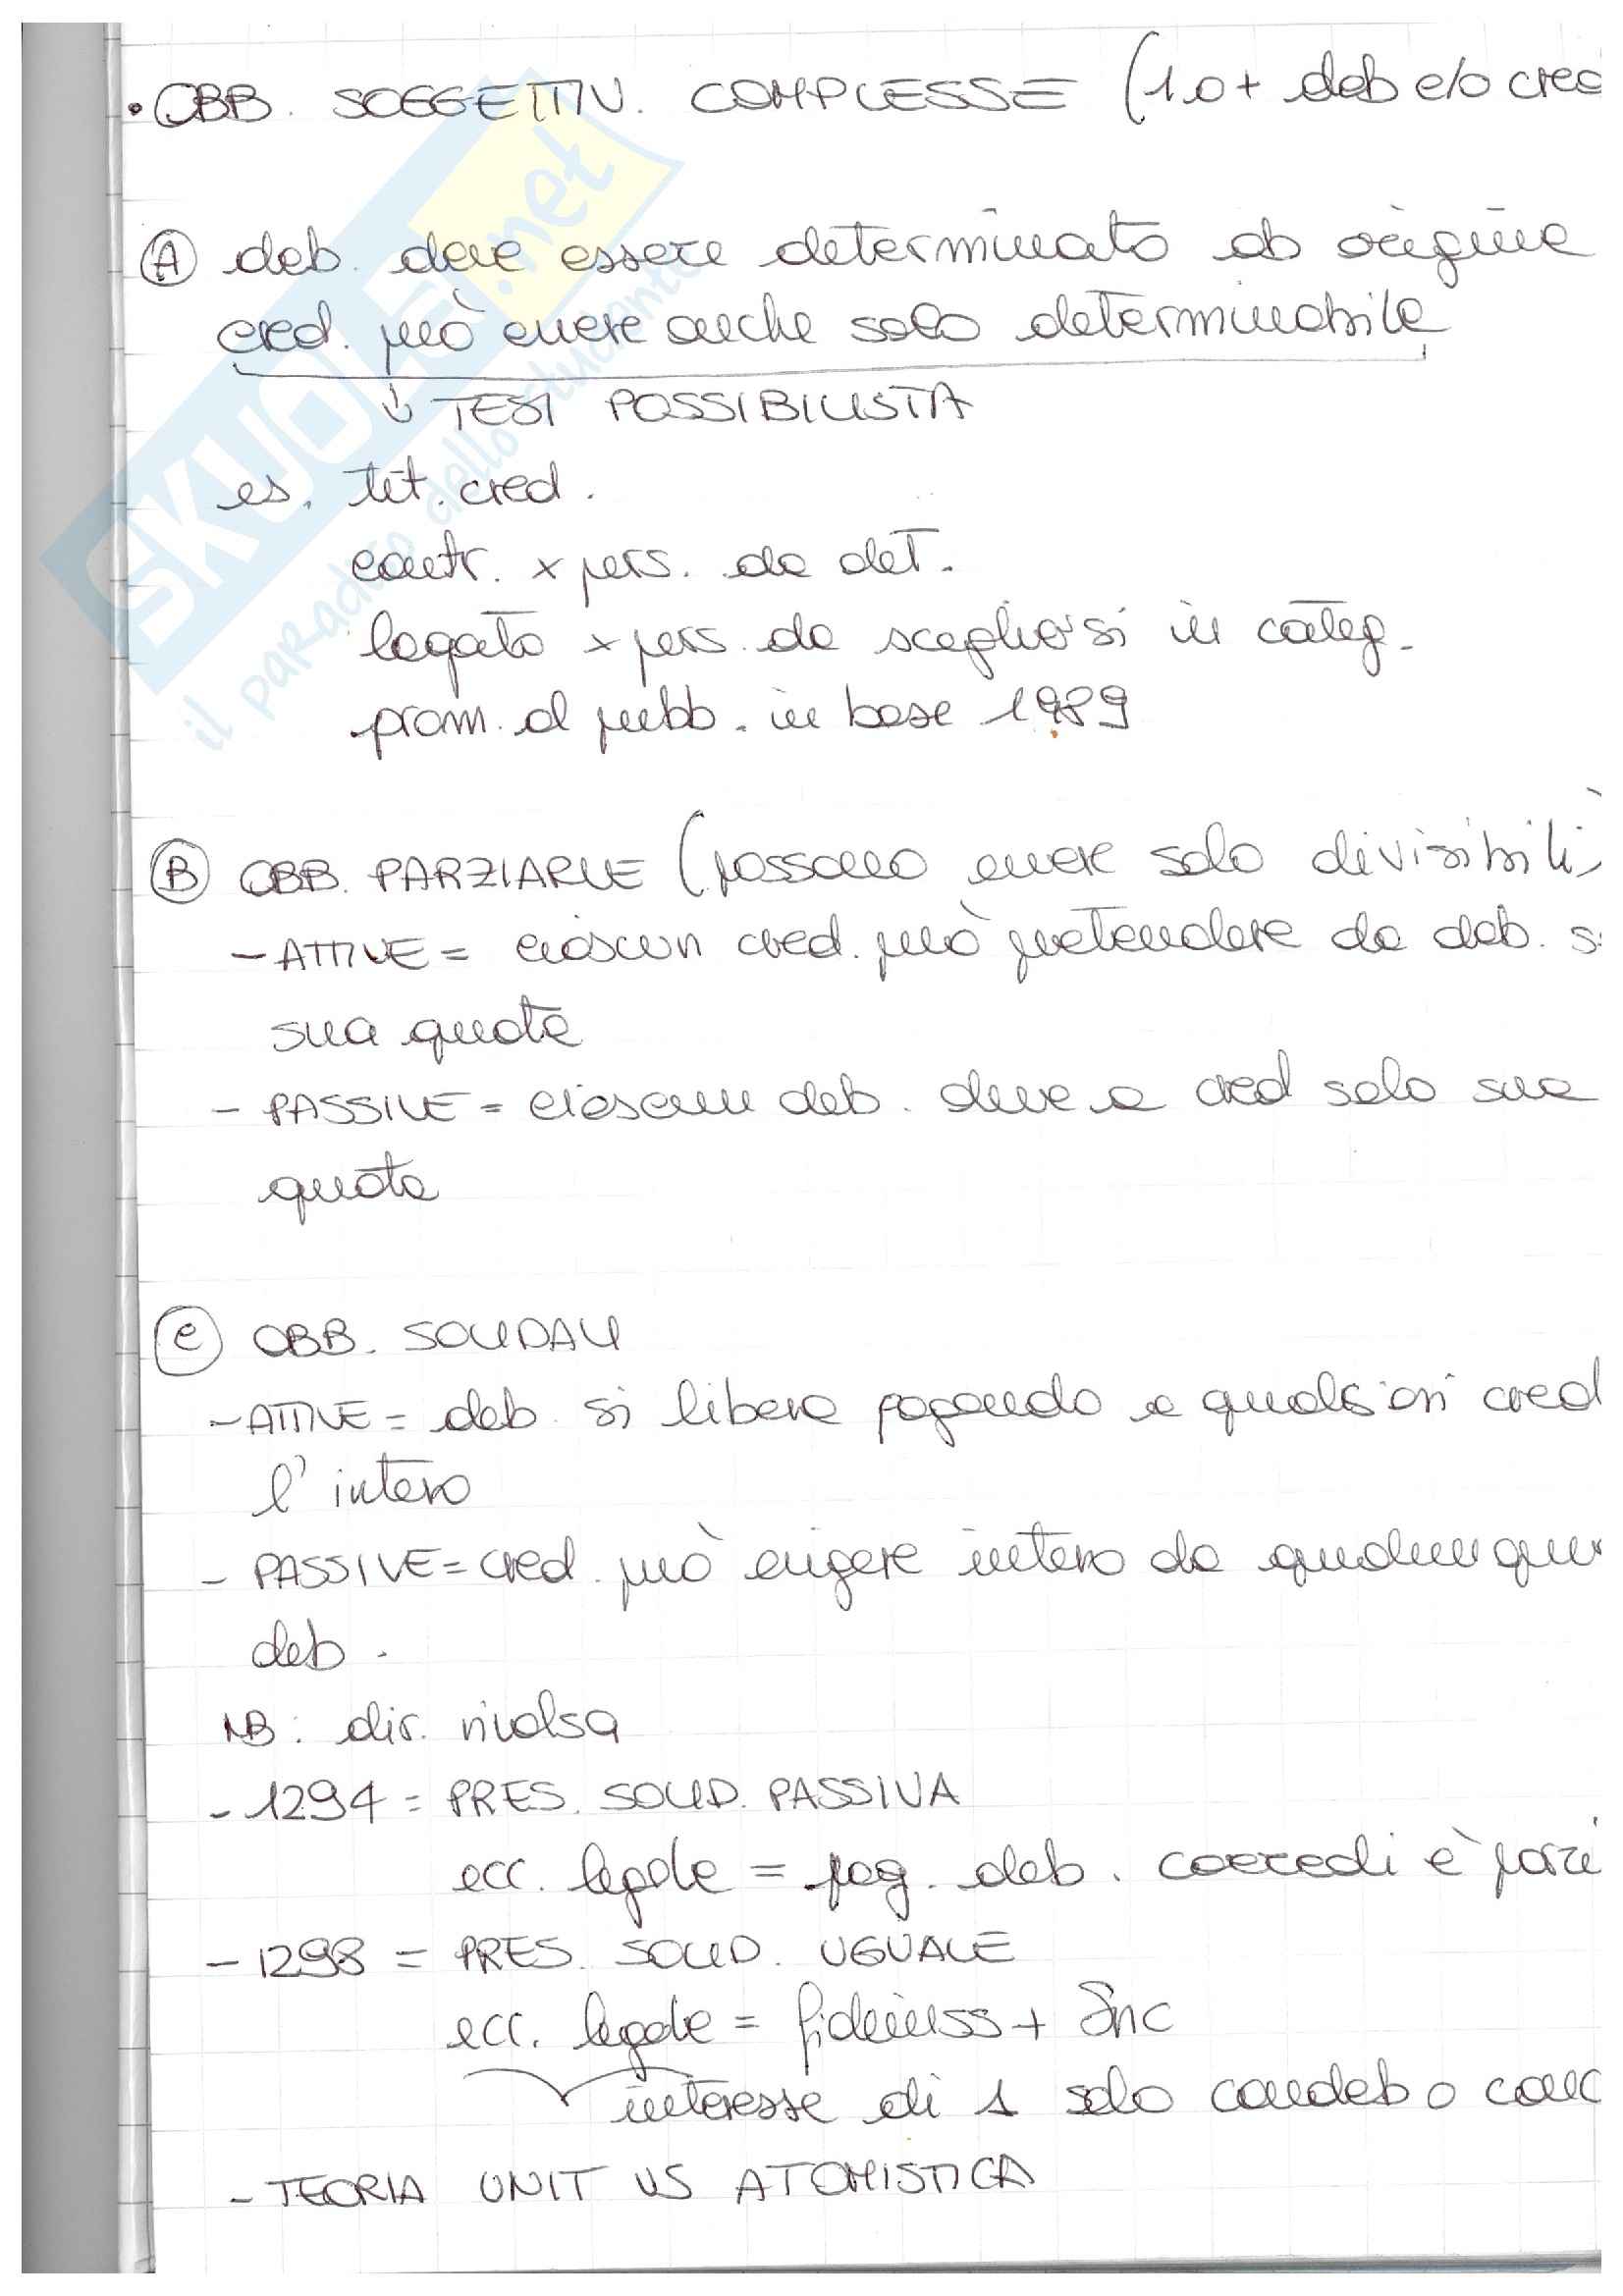 • OBB. SOGGETTIV. COMPLESSE (1 o + deb e/o cred
A deb. deve essere determinato ab origine
cred. può essere anche solo determinabile
↓ TESI POSSIBILISTA
es. tit. cred.
contr. x pers. da det.
legato x pers. da scegliersi in categ.
prom. al pubb. in base 1989
B OBB. PARZIARIE (possono essere solo divisibili)
- ATTIVE = ciascun cred. può pretendere da deb. s
sua quota
- PASSIVE = ciascun deb. deve a cred solo sua
quota
C OBB. SOLIDALI
- ATTIVE = deb. si libera pagando a qualsiasi cred
l'intero
- PASSIVE = cred. può esigere intero da qualunque
deb.
NB: dir. rivalsa
- 1294 = PRES. SOLID. PASSIVA
ecc. legale = pag. deb. coeredi è parzi
- 1298 = PRES. SOLID. UGUALE
ecc. legale = fideiuss + Snc
interesse di 1 solo condeb o conc
- TEORIA UNIT VS ATOMISTICA
SKUOLA.net
il paradiso dello studente